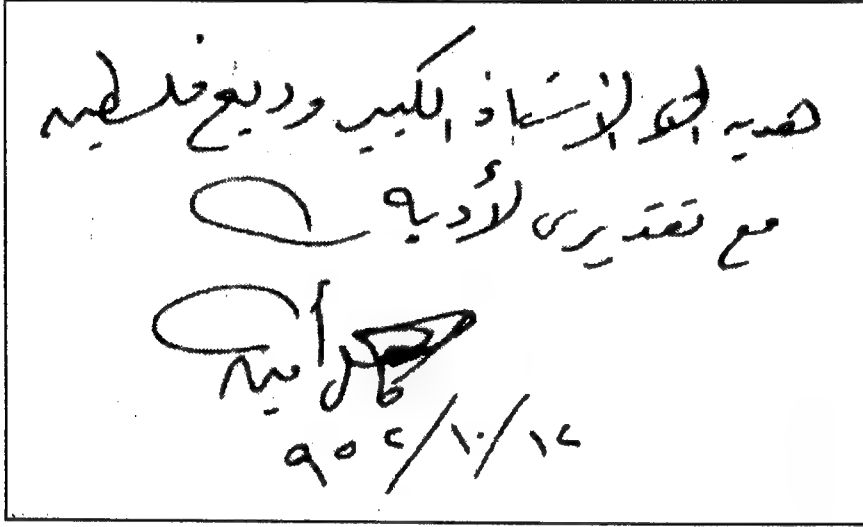 هدية الى الأستاذ الكبير وديع فلسطين
مع تقديرى لأدبه
أمين
١٢/١٠/٩٥٢